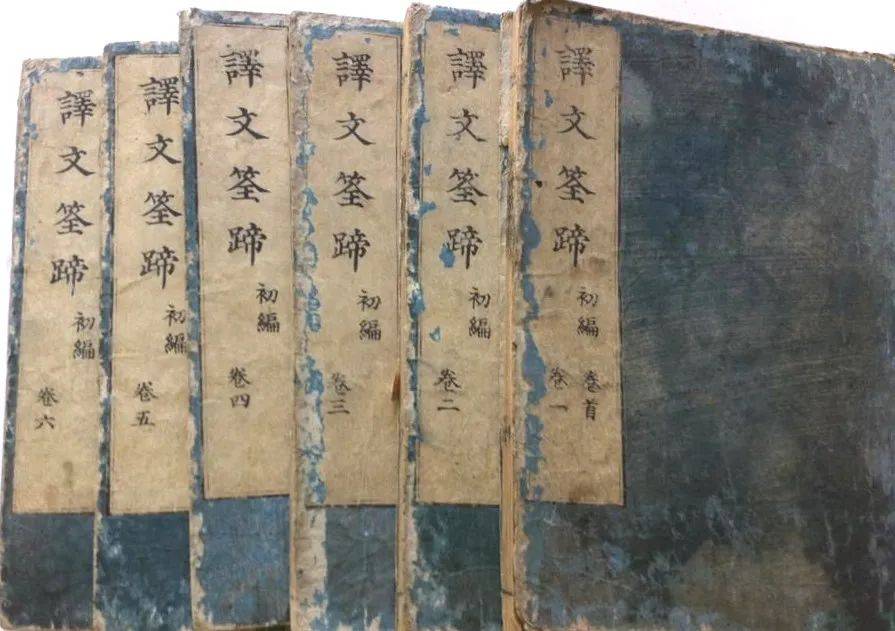 譯文筌蹄
初編
卷首
卷一
譯文筌蹄
初編
卷二
譯文筌蹄
初編
卷三
譯文筌蹄
初編
卷四
譯文筌蹄
初編
卷五
譯文筌蹄
初編
卷六